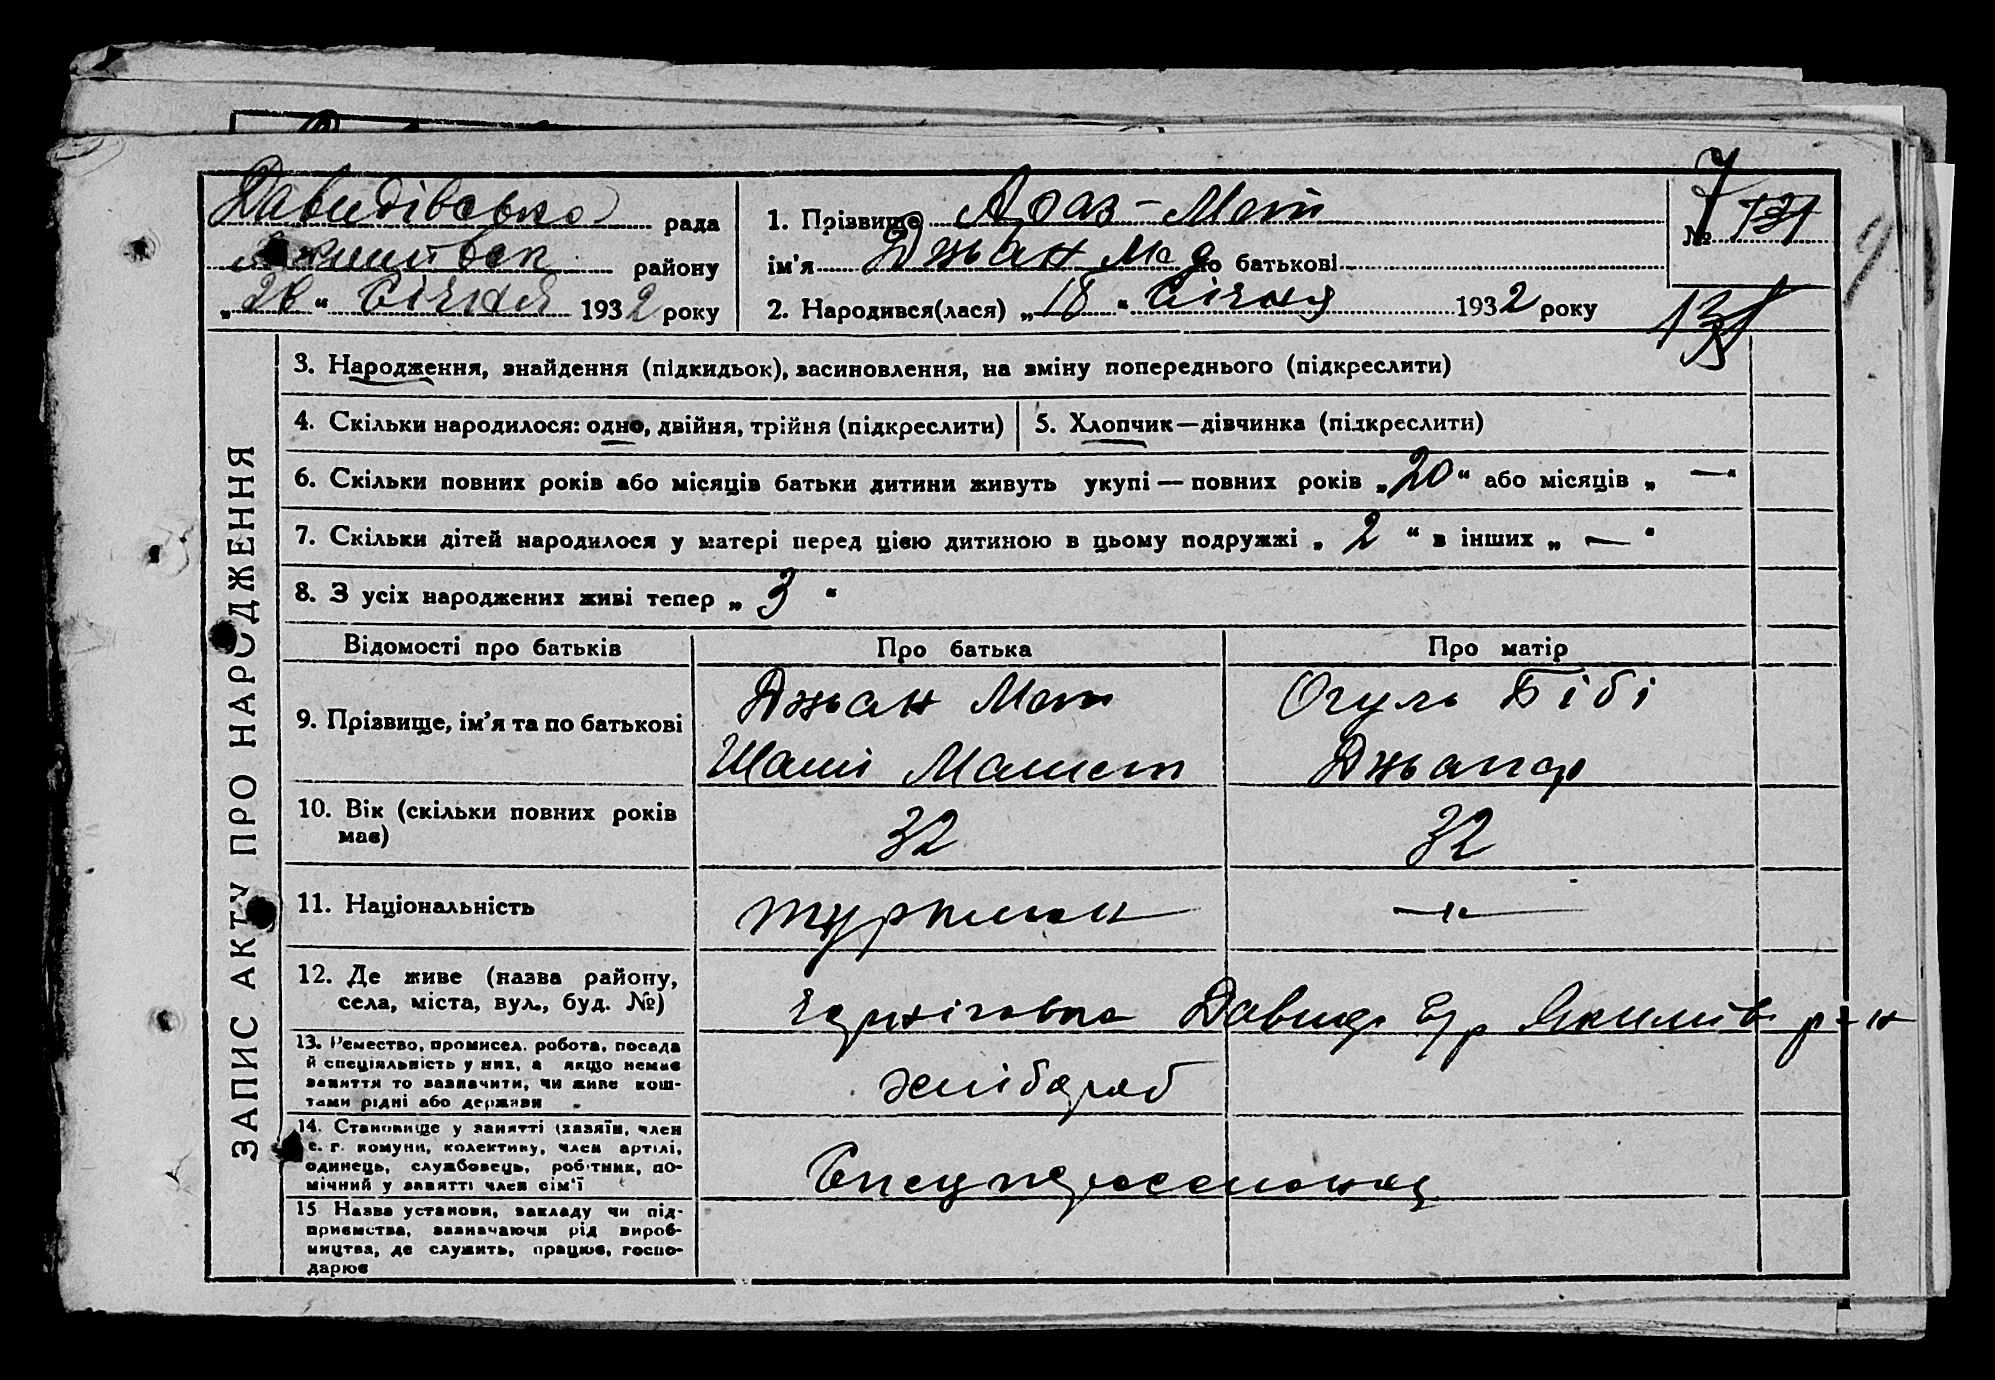 Давидівська рада
Якимівськ району
„28“ Січня 1932 року
1. Прізвище Араз-Мет
ім'я Джьан Мед по батькові
2. Народився(лася) „18“ Січня 1932 року
№ 131
131
3. Народження, знайдення (підкидьок), васиновлення, на зміну попереднього (підкреслити)
4. Скільки народилося: одно, двійня, трійня (підкреслити)
5. Хлопчик—дівчинка (підкреслити)
6. Скільки повних років або місяців батьки дитини живуть укупі — повних років „20“ або місяців „—“
7. Скільки дітей народилося у матері перед цією дитиною в цьому подружжі „2“ в інших „—“
8. З усіх народжених живі тепер „3“
ЗАПИС АКТУ ПРО НАРОДЖЕННЯ
Відомості про батьків Про батька Про матір
9. Прізвище, ім'я та по батькові
Джьан Мет Огуль Бібі
Шаші Мамет Джьапар
10. Вік (скільки повних років має) 32 32
11. Національність туркмен —"—
12. Де живе (назва району,
села, міста, вул., буд. №)
Давид с/р Якимів р-н
13. Ремество, промисел, робота, посада
й спеціяльність у них, а якщо немає
заняття то зазначити, чи живе кош-
тами рідні або держави
хлібораб
14. Становище у занятті (хазяїн, член
с. г. комуни, колективу, член артілі,
одинець, службовець, робітник, по-
мічний у занятті член сім'ї
Спецпереселенец
15 Назва установи, закладу чи під-
приємства, зазначаючи рід вироб-
ництва, де служить, працює, госпо-
дарює